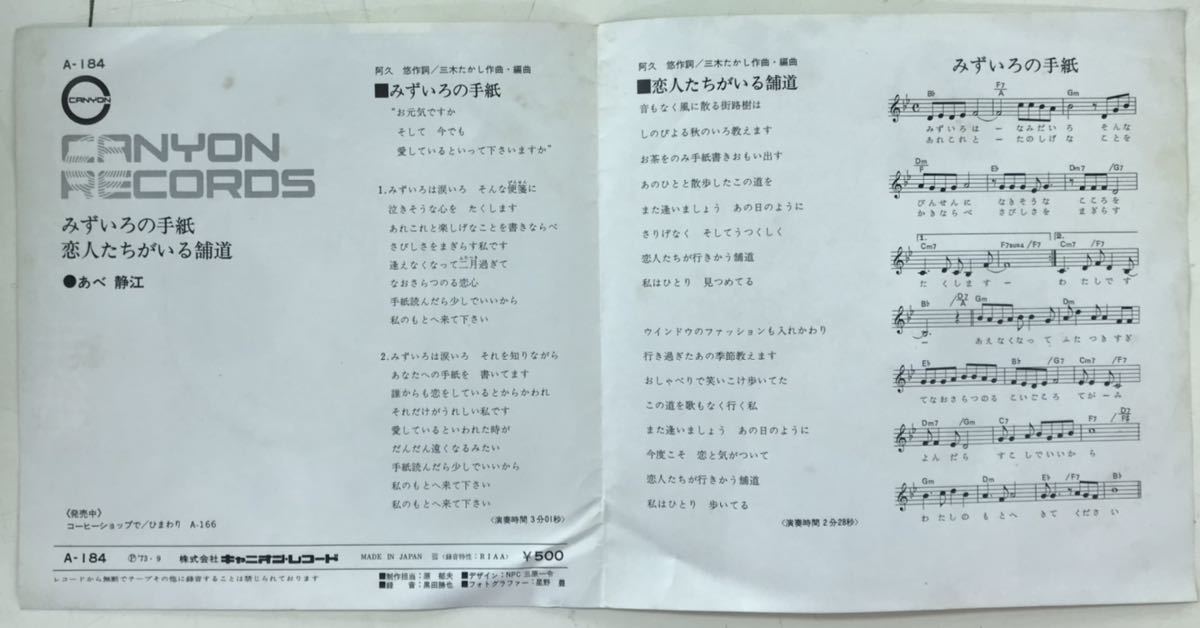 A-184
CANYON
CANYON
RECORDS
みずいろの手紙
恋人たちがいる舗道
●あべ 静江
〈発売中〉
コーヒーショップで/ひまわり A-166
阿久 悠作詞/三木たかし作曲・編曲
■みずいろの手紙
“お元気ですか
そして 今でも
愛しているといって下さいますか”
1.みずいろは涙いろ そんな便箋に
泣きそうな心を たくします
あれこれと楽しげなことを書きならべ
さびしさをまぎらす私です
逢えなくなって二月過ぎて
なおさらつのる恋心
手紙読んだら少しでいいから
私のもとへ来て下さい
2.みずいろは涙いろ それを知りながら
あなたへの手紙を 書いてます
誰からも恋をしているとからかわれ
それだけがうれしい私です
愛しているといわれた時が
だんだん遠くなるみたい
手紙読んだら少しでいいから
私のもとへ来て下さい
私のもとへ来て下さい
〈演奏時間3分01秒〉
A-184 Ⓟ'73・9 株式会社 キャニオン・レコード MADE IN JAPAN (録音特性:RIAA) ¥500
レコードから無断でテープその他に録音することは禁じられております
■制作担当:原 郁夫 ■デザイン:NPC 三原一令
■録 音:黒田勝也 ■フォトグラファー:星野
阿久 悠作詞/三木たかし作曲・編曲
■恋人たちがいる舗道
音もなく風に散る街路樹は
しのびよる秋のいろ教えます
お茶をのみ手紙書きおもい出す
あのひとと散歩したこの道を
また逢いましょう あの日のように
さりげなく そしてうつくしく
恋人たちが行きかう舗道
私はひとり 見つめてる
ウインドウのファッションも入れかわり
行き過ぎたあの季節教えます
おしゃべりで笑いこけ歩いてた
この道を歌もなく行く私
また逢いましょう あの日のように
今度こそ 恋と気がついて
恋人たちが行きかう舗道
私はひとり 歩いてる
〈演奏時間2分28秒〉
みずいろの手紙
B♭ F7/A Gm
みずいろは ー なみだいろ そんな
あれこれと ー たのしげな ことを
Dm/F E♭ Dm7/G7
びんせんに なきそうな こころを
かきならべ さびしさを まぎらす
1. 2.
Cm7 F7sus4/F7 Cm7/F7
たくします ー わたしです
B♭ /D7/A Gm Dm
ー あえなくなって ふたつきすぎ
E♭ B♭ /G7 Cm7/F7
てなおさらつのる こいごころ てがーみ
Dm7 /Gm C7 F7 /D7/F#
よんだら すこしでいいから
Gm Dm E♭ /F7 B♭
わたしの もとへ きて ください